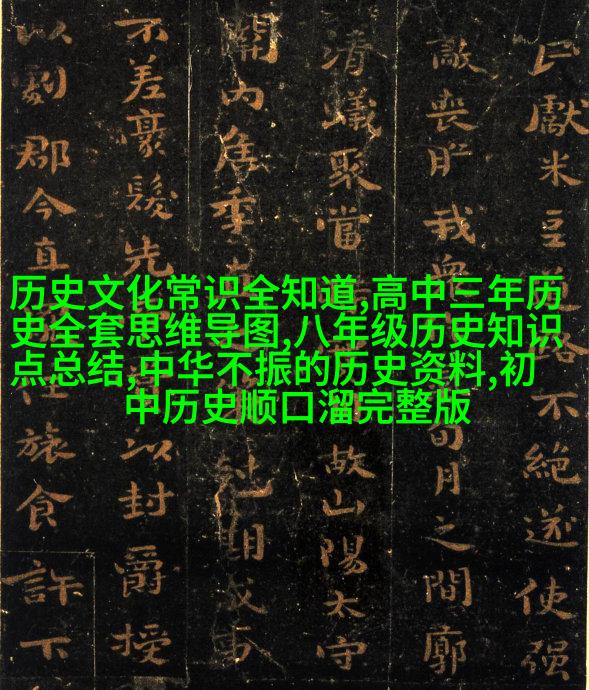 历史文化常识全知道,高中三年历
史全套思维导图,八年级历史知识
点总结,中华不振的历史资料,初
中历史顺口溜完整版
獻米豆道路不絕遂使强
敵喪膽我衆旬月之間廓
清蟻聚當故山陽太守
關內侯季直剋期成事
不差豪髮先以封爵授
以劇郡今直任旅食許下